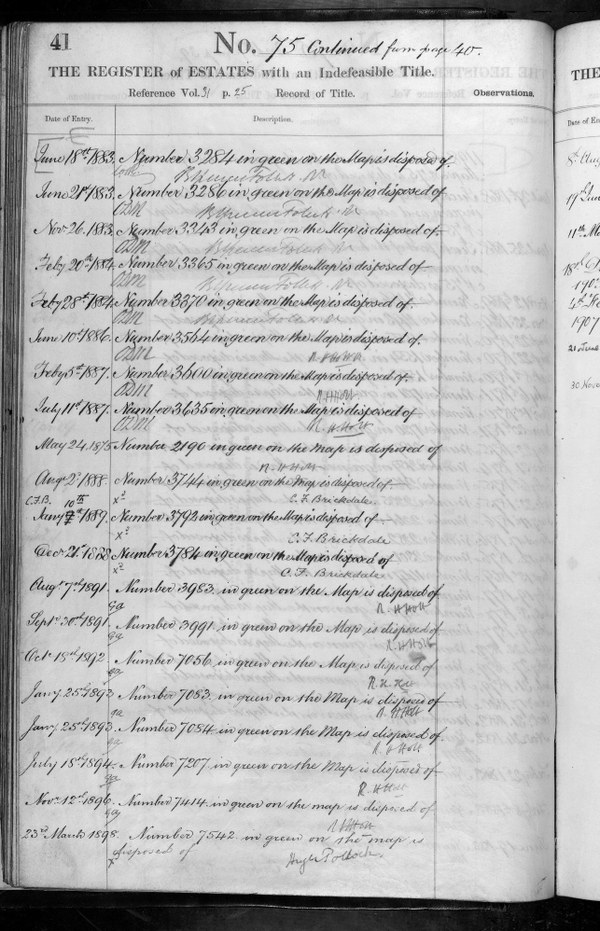 41
No. 75 Continued from page 40.
THE REGISTER of ESTATES with an Indefeasible Title.
Reference Vol. 31 p. 25 Record of Title. Observations.
Date of Entry. Description.
June 18th 1883. Number 3284 in green on the Map is disposed of
B Spencer Follett
June 21st 1883. Number 3286 in green on the Map is disposed of
B Spencer Follett
Nov 26. 1883. Number 3343 in green on the Map is disposed of
B Spencer Follett
Feby 20th 1884. Number 3365 in green on the Map is disposed of
B Spencer Follett
Feby 28th 1884. Number 3370 in green on the Map is disposed of
B Spencer Follett
June 10th 1886. Number 3564 in green on the Map is disposed of
R H Holt
Feby 5th 1887. Number 3600 in green on the Map is disposed of
R H Holt
July 11th 1887. Number 3635 in green on the Map is disposed of
R H Holt
May 24. 1875 Number 2190 in green on the Map is disposed of
R. H Holt
Augt 2d 1888. Number 3744 in green on the Map is disposed of
C.F.B. 10th C. F. Brickdale.
Jany 1889. Number 3792 in green on the Map is disposed of
C. F. Brickdale
Decr 21st 1888 Number 3784 in green on the Map is disposed of
C. F. Brickdale
Augt 7th 1891. Number 3983 in green on the Map is disposed of
R. H Holt
Septr 30th 1891. Number 3991 in green on the Map is disposed of
R. H Holt
Octr 18th 1892 Number 7056 in green on the Map is disposed of
R. H. Holt
Jany 25th 1893 Number 7083 in green on the Map is disposed of
R. H Holt
Jany 25th 1893. Number 7084 in green on the Map is disposed of
R. H Holt
July 18th 1894. Number 7207 in green on the Map is disposed of
R. H Holt
Novr 12th 1896. Number 7414 in green on the map is disposed of
R H Holt
23rd March 1898. Number 7542 in green on the map is
disposed of
Hugh Pollock
THE
Date of Ent
11th Ma
1907